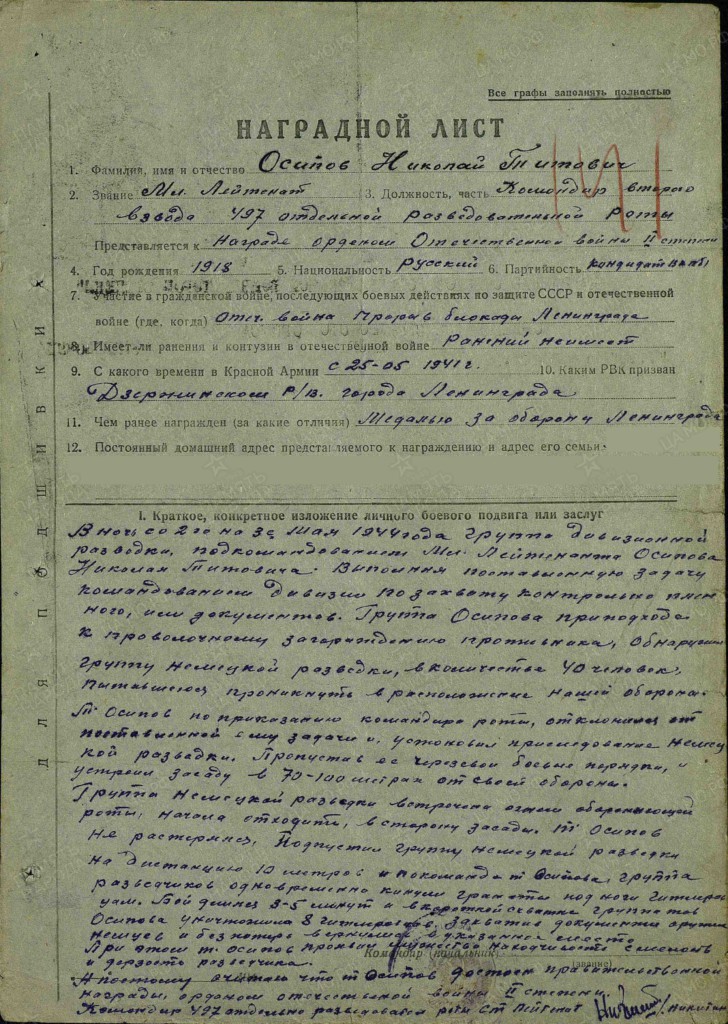 Все графы заполнять полностью
НАГРАДНОЙ ЛИСТ
1. Фамилия, имя и отчество Осипов Николай Титович
2. Звание Мл. Лейтенат 3. Должность, часть Командир второго
взвода 497 отдельной разведовательной роты
Представляется к Награде орденом Отечественной войны II степени
4. Год рождения 1918 5. Национальность Русский 6. Партийность кандидат
7. Участие в гражданской войне, последующих боевых действиях по защите СССР и отечественной
войне (где, когда) Отеч. война Прорыв блокады Ленинграда
8. Имеет-ли ранения и контузии в отечественной войне Ранений неимеет
9. С какого времени в Красной Армии с 25-05 1941 г. 10. Каким РВК призван
Дзержинском Р/В. города Ленинграда
11. Чем ранее награжден (за какие отличия) Медалью за оборону Ленинграда
12. Постоянный домашний адрес представляемого к награждению и адрес его семьи
I. Краткое, конкретное изложение личного боевого подвига или заслуг
В ночь со 2го на 3е Мая 1944 года группа дивизионной
разведки, подкомандованием Мл. Лейтенанта Осипова
Николая Титовича. Выполняя поставленную задачу
командованием дивизии по захвату контрольно плен
ного, или документов. Группа Осипова приподходе
к проволочному заграждению противника, Обнаружил
группу немецкой разведки, в количестве 40 человек,
пытавшеюся проникнуть в расположение нашей обороны.
Т. Осипов по приказанию командира роты, отклонился от
поставленной ему задачи и установил приследование Немец
кой разведки. Пропустив ее черезсвои боевые порядки, и
устроил засаду в 70-100 метрах от своей обороны.
Группа немецкой разведки встречена огнем обороняющей
роты, начала отходить, в сторону засады. т Осипов
Не растерялся, Подпустил группу немецкой разведки
на дистанцию 10 метров и покоманде т Осипова, группа
разведчиков одновременно кинули гранаты под ноги Гитлеров
цам. Бой длился 3-5 минут и в короткой схватке группа тов
Осипова уничтожила 8 гитлеровцев, захватив документы
немцев и без потерь вернулись в указанное место
При этом т. Осипов проявил мужество находчивость смелость
и дерзость разведчика.
Командир (начальник)
(звание)
Апоэтому считаю что т Осипов достоен правительственной
награды орденом отечественной войны II степени.
Командир 497 отдельной разведроты Ст Лейтенат /Никитин
ДЛЯ ПОДШИВКИ